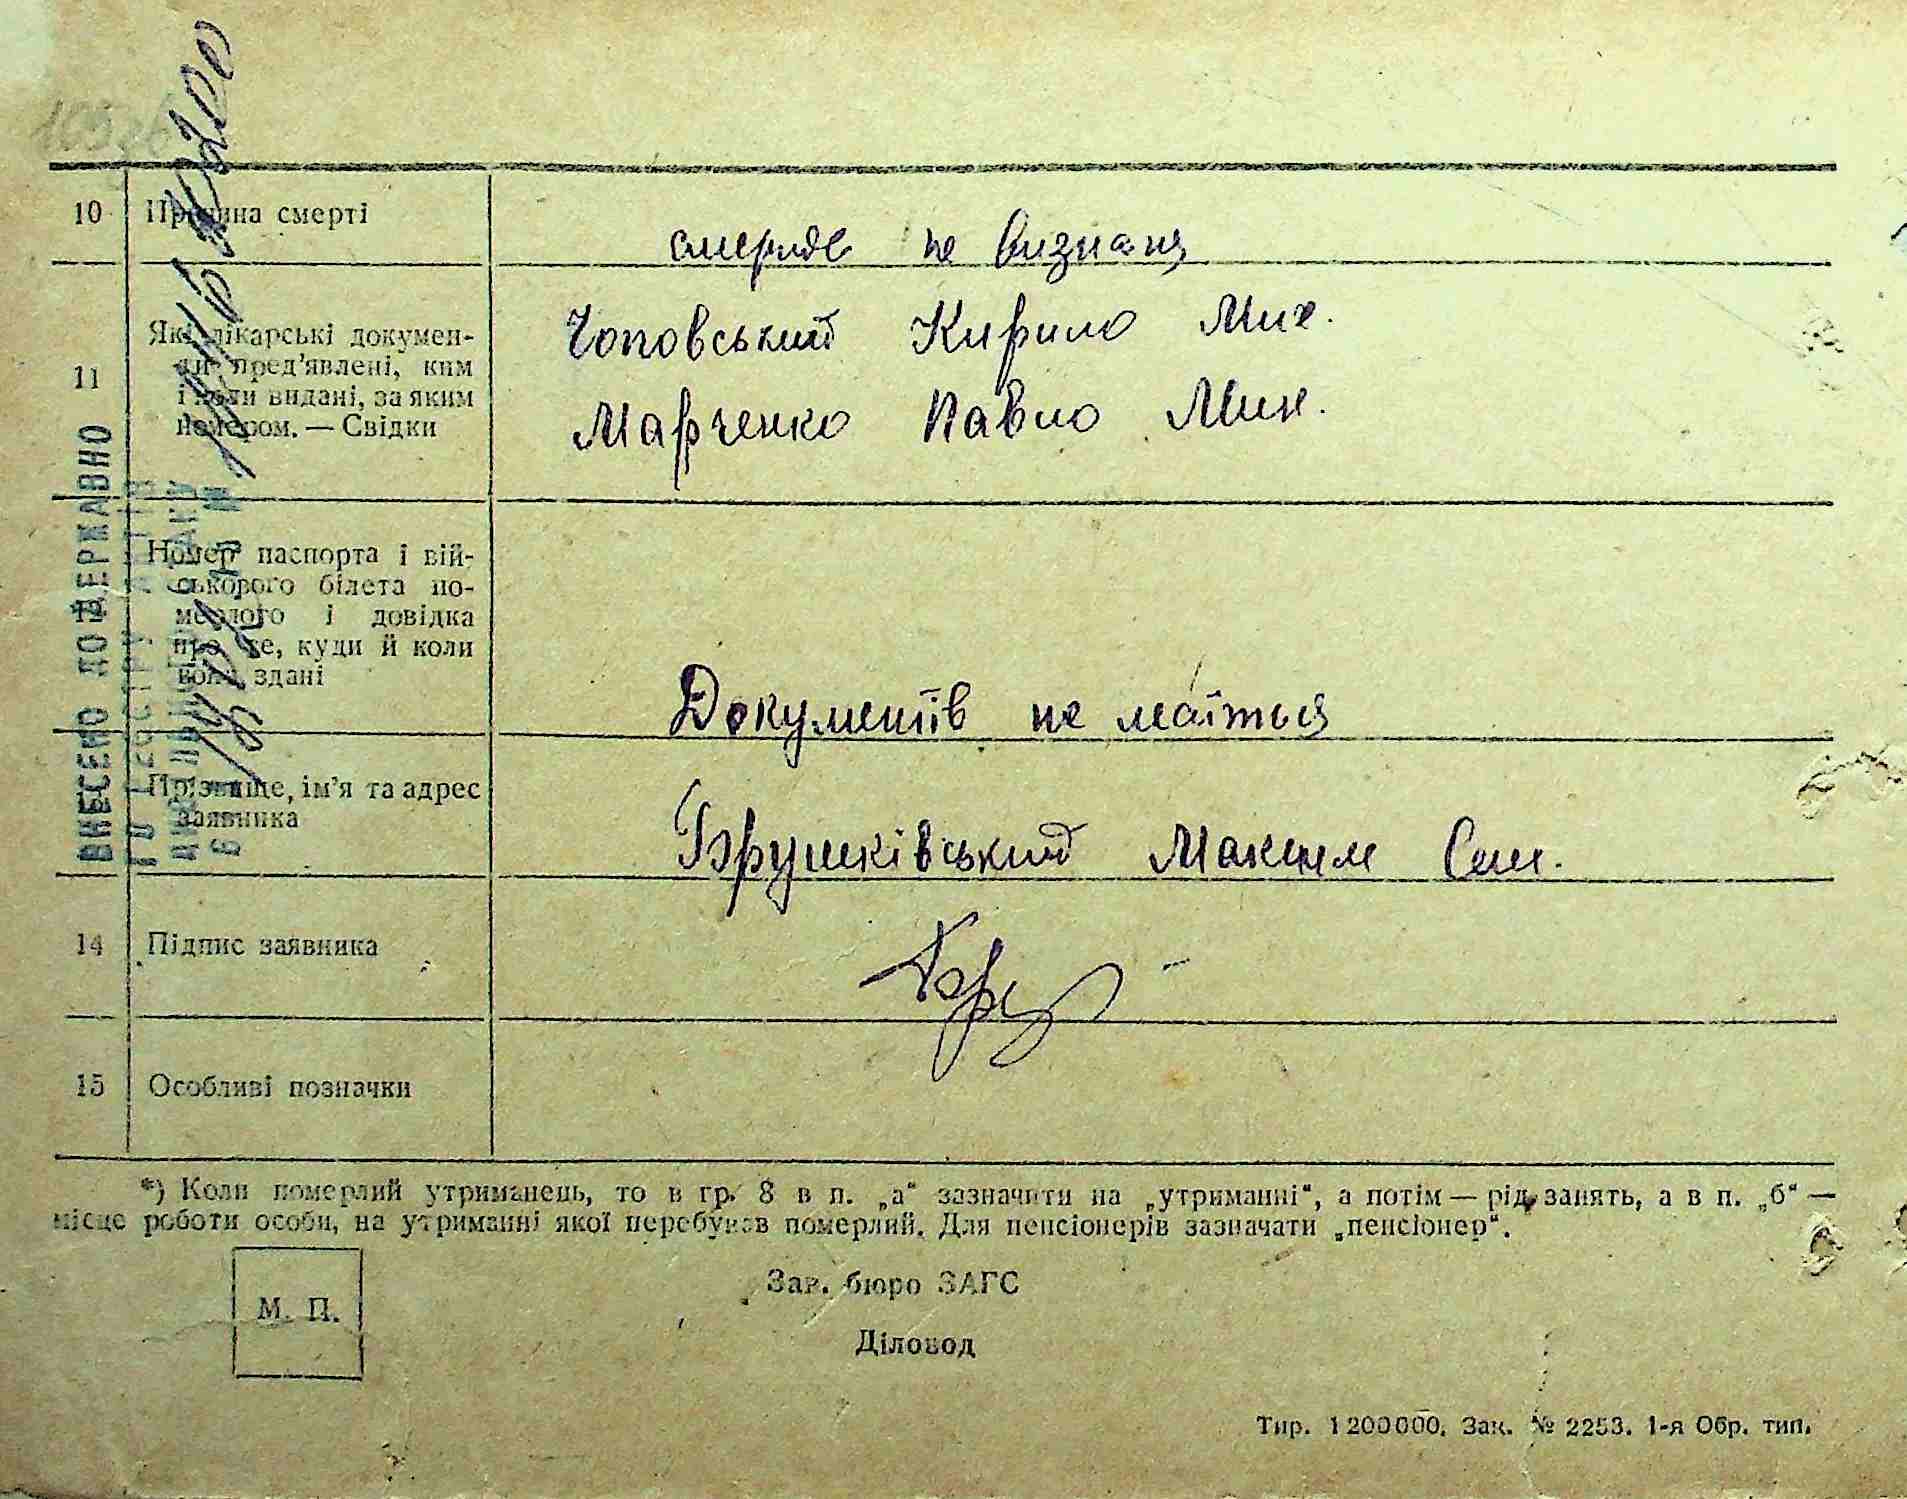 10 Причина смерті
смертє не визнана
11 Які лікарські докумен-
ти пред'явлені, ким
і коли видані, за яким
номером. — Свідки
Чоповський Кирило Мих.
Марченко Павло Мих.
Номер паспорта і вій-
ськового білета по-
мерлого і довідка
про те, куди й коли
вони здані
Документів не маїться
Прізвище, ім'я та адрес
заявника
Брушківський Максим Сем.
14 Підпис заявника
15 Особливі позначки
*) Коли померлий утриманець, то в гр. 8 в п. „а“ зазначити на „утриманні“, а потім — рід занять, а в п. „б“ —
місце роботи особи, на утриманні якої перебував померлий. Для пенсіонерів зазначати „пенсіонер“.
Зав. бюро ЗАГС
М. П.
Діловод
Тир. 1200000. Зак. № 2253. 1-я Обр. тип.
ВНЕСЕНО ДО ДЕРЖАВНО
ГО РЕЄСТРУ АКТІВ